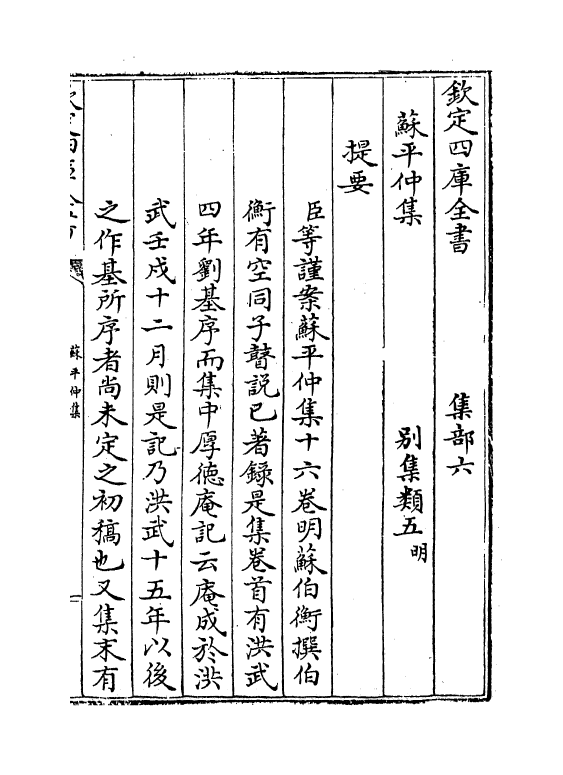 欽定四庫全書　集部六
蘇平仲集　别集類五明
提要
臣等謹案蘇平仲集十六卷明蘇伯衡撰伯
衡有空同子瞽説已著録是集卷首有洪武
四年劉基序而集中厚徳庵記云庵成於洪
武壬戌十二月則是記乃洪武十五年以後
之作基所序者尚未定之初稿也又集末有
蘇平仲集
一